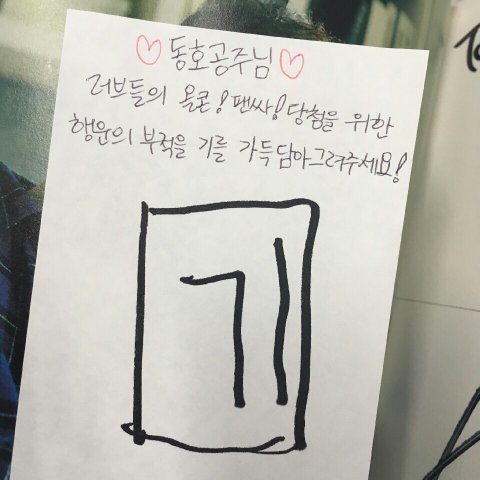 ♡동호공주님♡
러브들의 올콘! 팬싸! 당첨을 위한
행운의 부적을 기를 가득담아그려주세요!
기